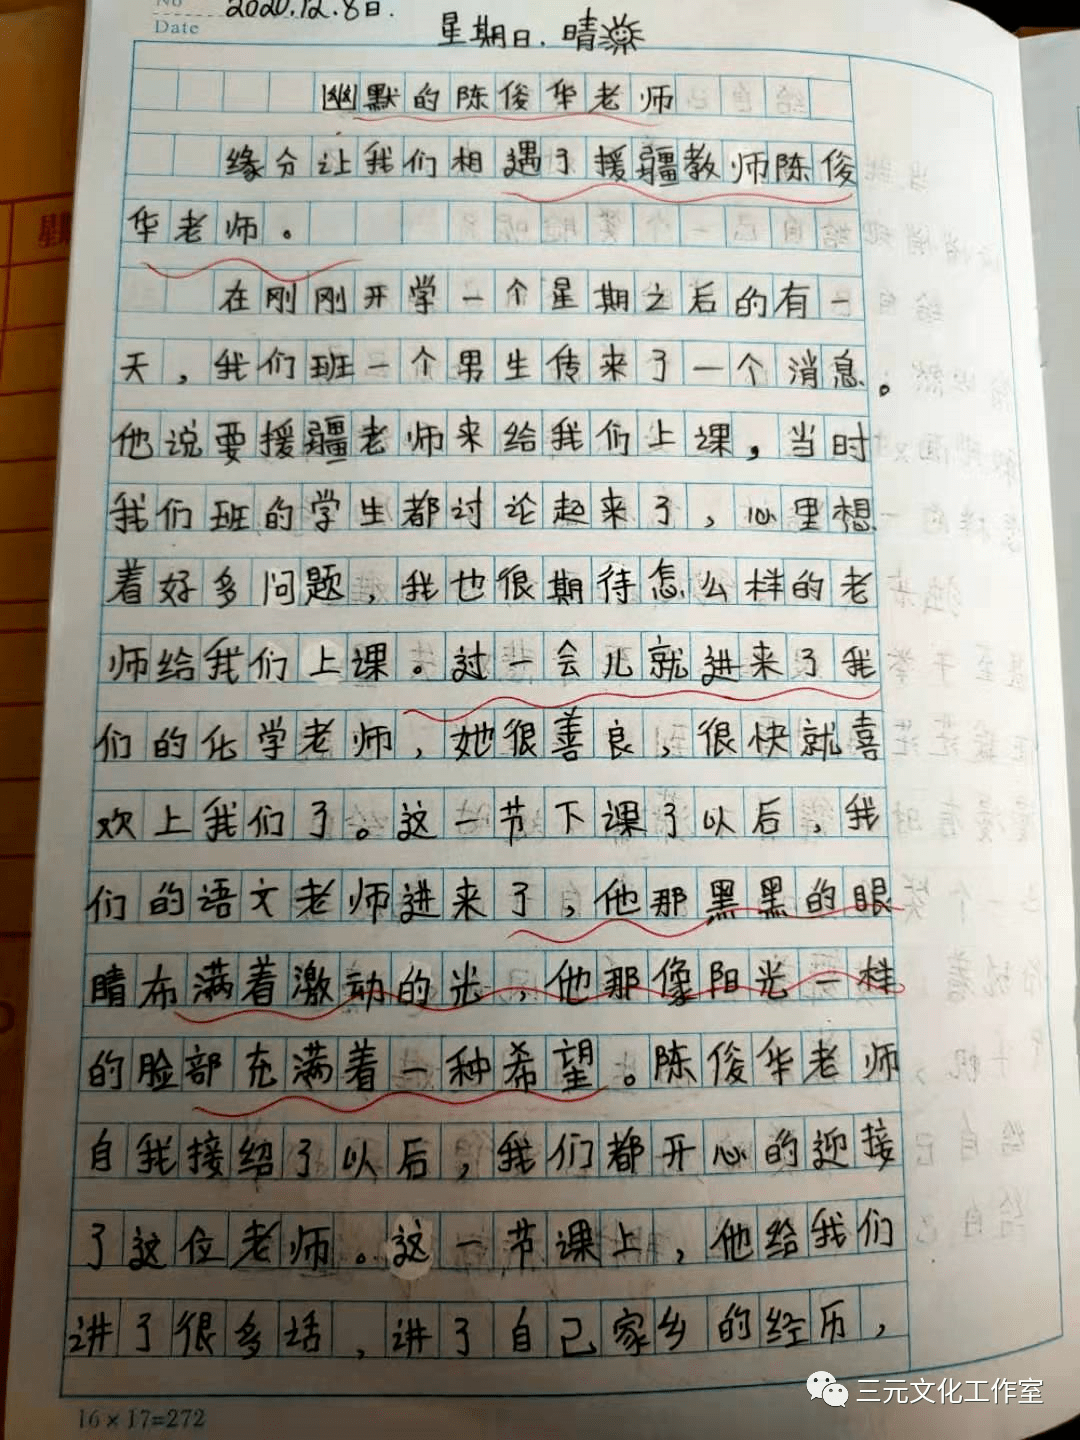 No 2020.12.8日.
Date
星期日.晴
幽默的陈俊华老师
缘分让我们相遇了援疆教师陈俊
华老师。
在刚刚开学一个星期之后的有一
天,我们班一个男生传来了一个消息。
他说要援疆老师来给我们上课,当时
我们班的学生都讨论起来了,心里想
着好多问题,我也很期待怎么样的老
师给我们上课。过一会儿就进来了我
们的化学老师,她很善良,很快就喜
欢上我们了。这一节下课了以后,我
们的语文老师进来了,他那黑黑的眼
睛布满着激动的光,他那像阳光一样
的脸部充满着一种希望。陈俊华老师
自我接绍了以后,我们都开心的迎接
了这位老师。这一节课上,他给我们
讲了很多话,讲了自己家乡的经历,
16×17=272
三元文化工作室